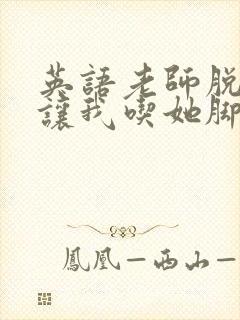 英語老師脱
讓我喫她脚
鳳凰—西山—